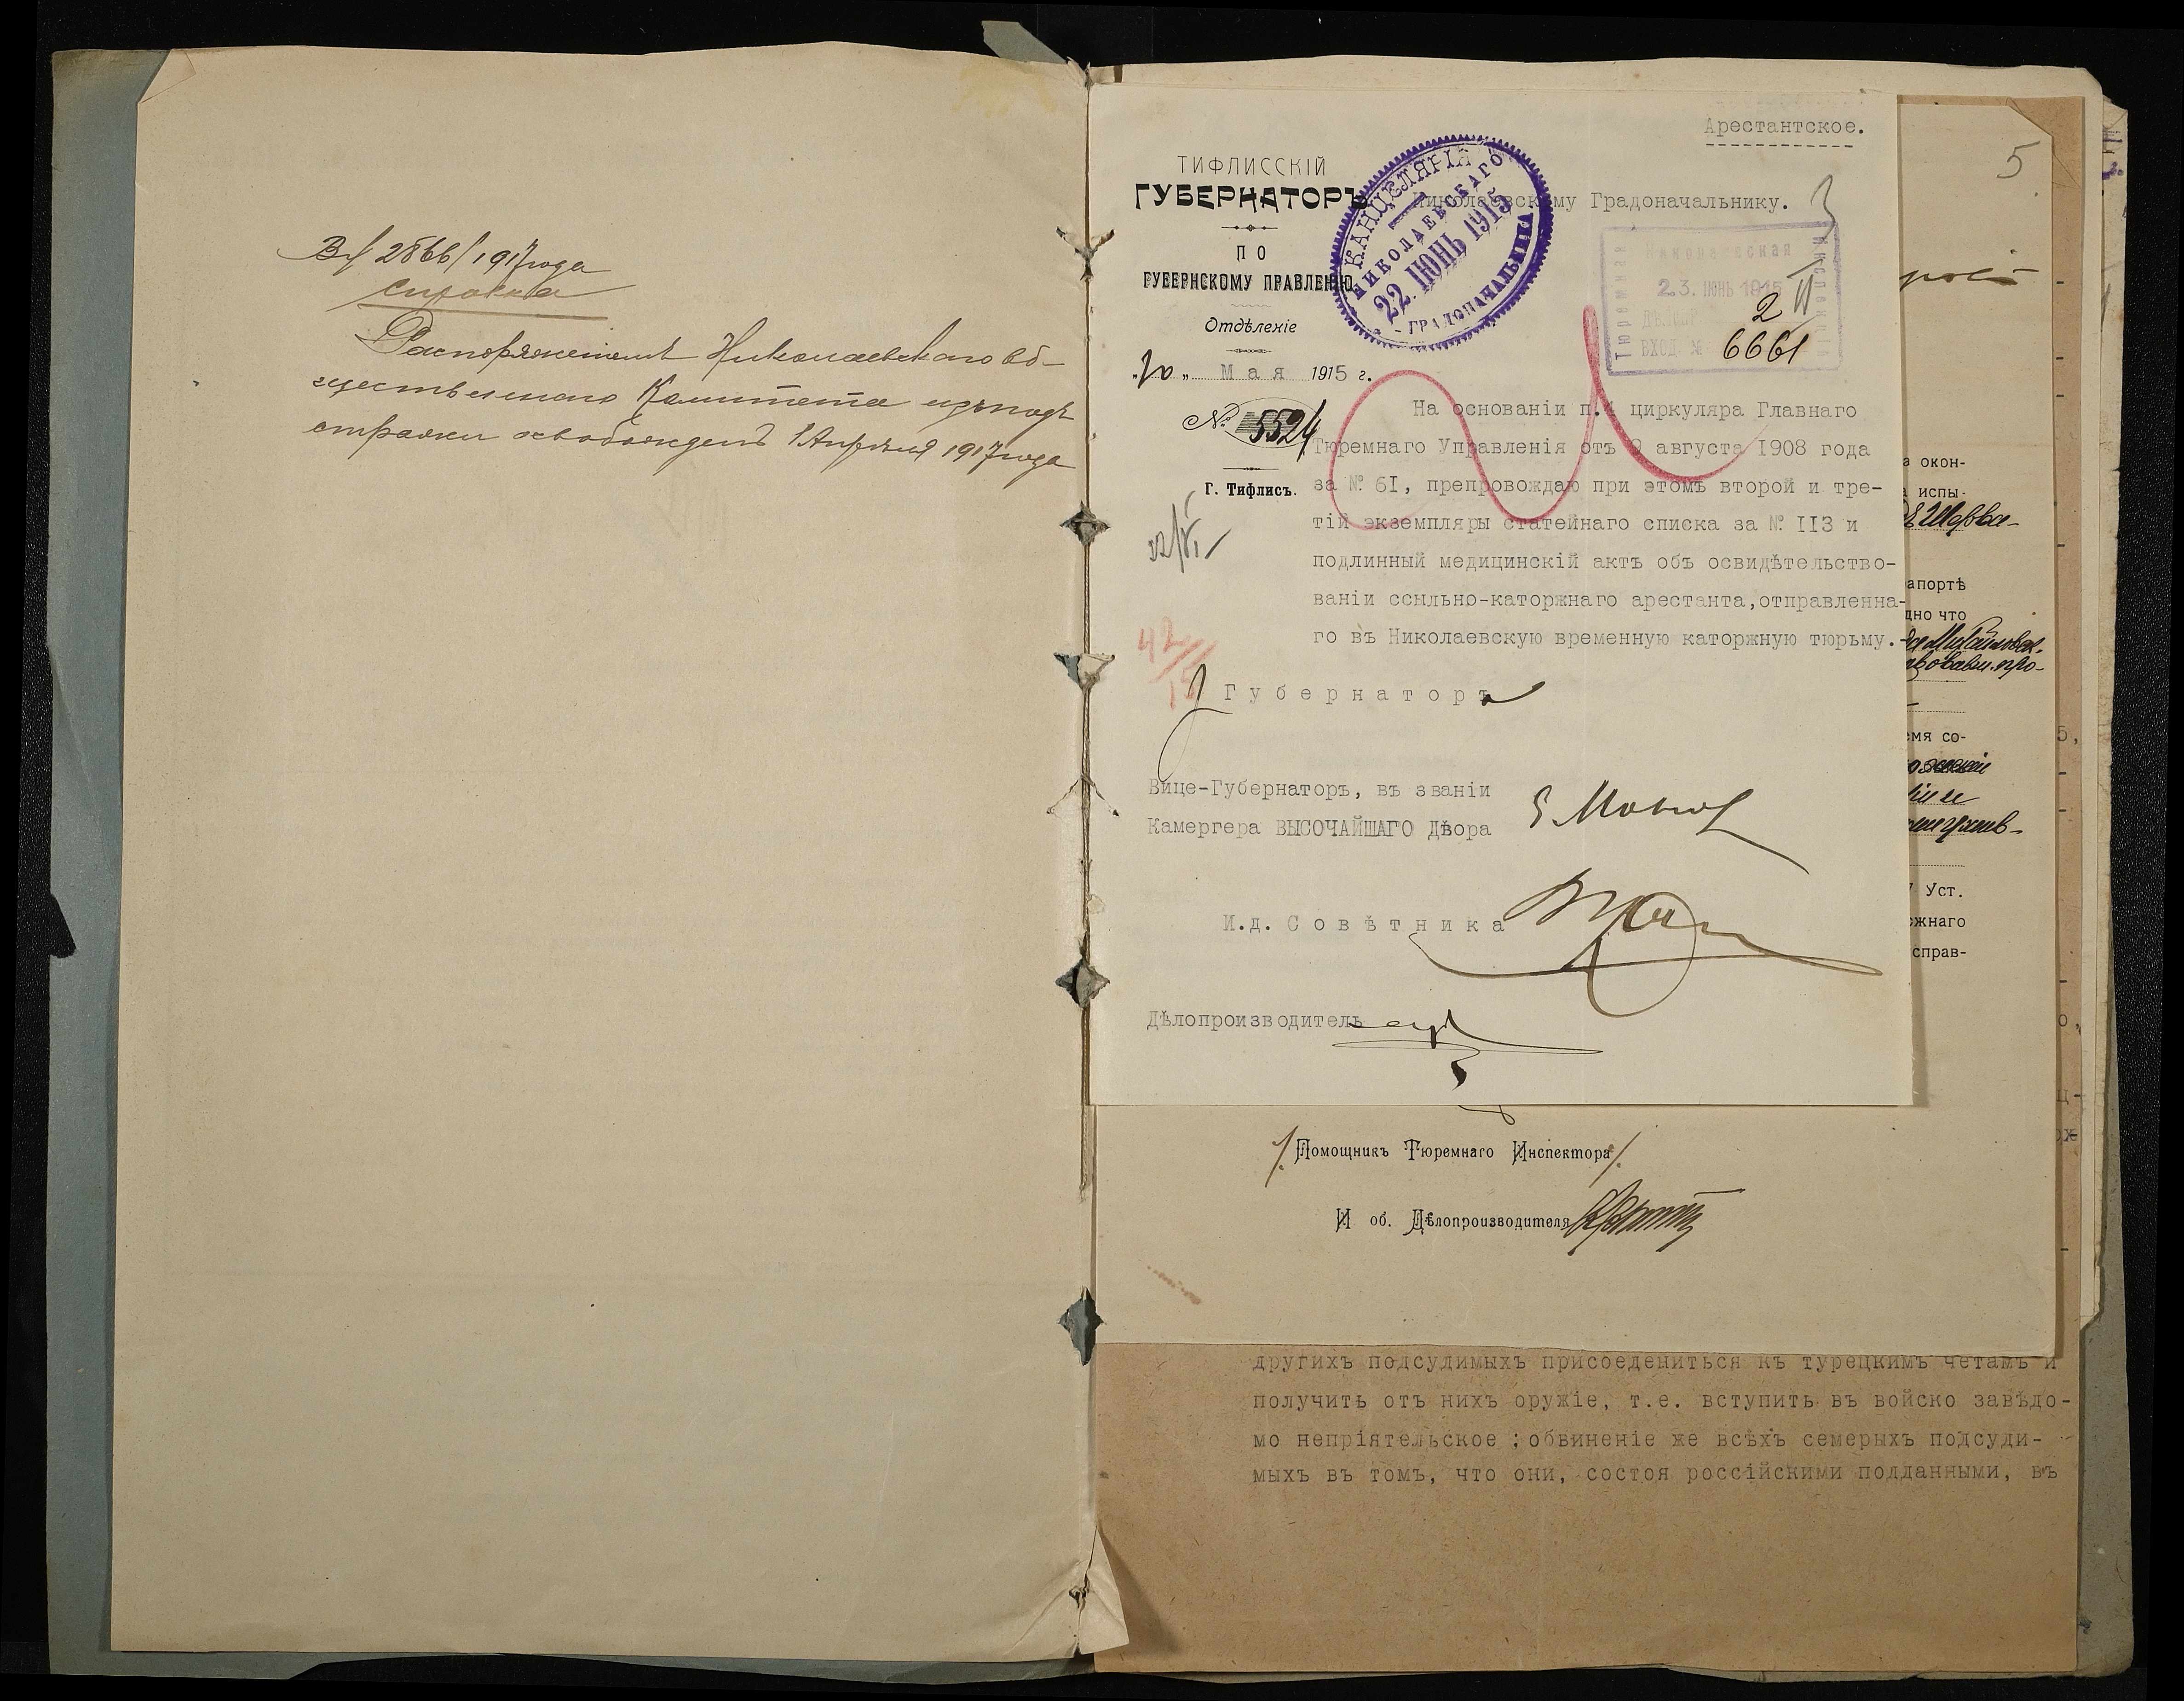 Вх 2866/1917 года
Справка
Распоряженіемъ Николаевскаго об-
щественнаго Комитета изъ подъ
стражи освобожденъ 1 Апрѣля 1917 года
Арестантское.
ТИФЛИССКІЙ
ГУБЕРНАТОРЪ
ПО
ГУБЕРНСКОМУ ПРАВЛЕНІЮ
Отдѣленіе
„30„ Мая 1915 г.
№ 5524
Г. Тифлисъ.
КАНЦЕЛЯРІЯ
НИКОЛАЕВСКАГО
22. ІЮНЬ 1915
ГРАДОНАЧАЛЬНИКА
Николаевскому Градоначальнику.
3
Николаевская
Тюремная
Инспекція
23. ІЮНЬ 1915
2
ВХОД. № 6661
На основаніи п.4 циркуляра Главнаго
Тюремнаго Управленія отъ 9 августа 1908 года
за № 61, препровождаю при этомъ второй и тре-
тій экземпляры статейнаго списка за № 113 и
подлинный медицинскій актъ объ освидѣтельство-
ваніи ссыльно-каторжнаго арестанта,отправленна-
го въ Николаевскую временную каторжную тюрьму.
22/VI
42/15
Губернаторъ
Вице-Губернаторъ, въ званіи
Камергера ВЫСОЧАЙШАГО Двора
И.д. Совѣтника
Дѣлопроизводитель
5
окон-
испы-
апортѣ
дно что
емя со-
Уст.
жнаго
справ-
Помощникъ Тюремнаго Инспектора
И об. Дѣлопроизводителя
другихъ подсудимыхъ присоедениться къ турецкимъ четамъ и
получить отъ нихъ оружіе, т.е. вступить въ войско завѣдо-
мо непріятельское ; обвиненіе же всѣхъ семерыхъ подсуди-
мыхъ въ томъ, что они, состоя россійскими подданными, въ